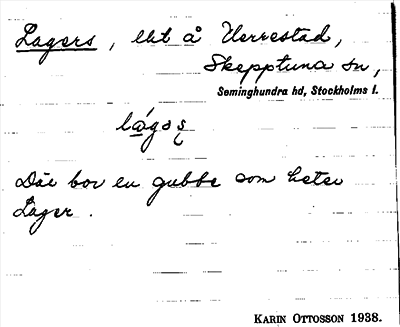 Lagers, lht å Herrestad,
Skepptuna sn,
Seminghundra hd, Stockholms l.
lágəş
Där bor en gubbe som heter
Lager.
KARIN OTTOSSON 1938.